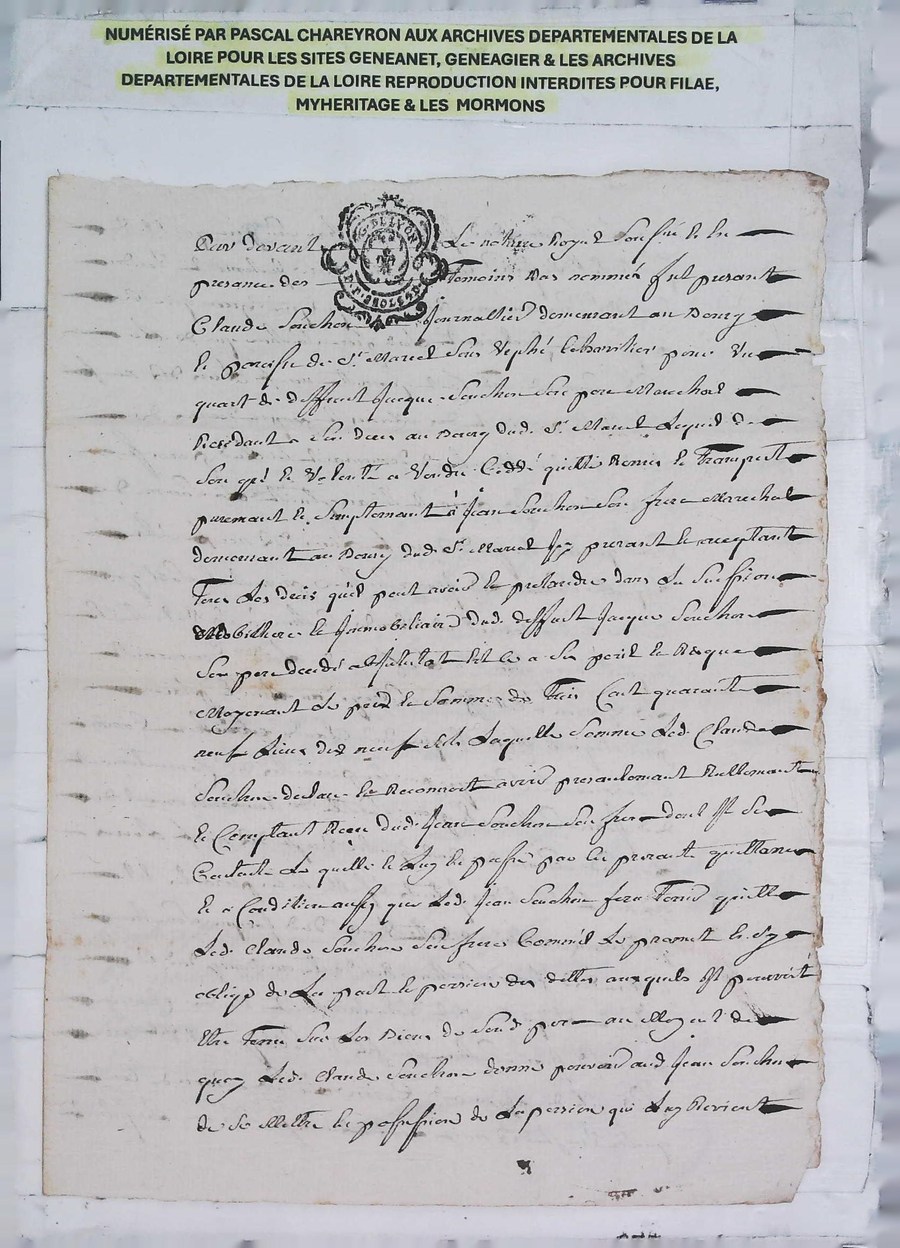 NUMÉRISÉ PAR PASCAL CHAREYRON AUX ARCHIVES DEPARTEMENTALES DE LA
LOIRE POUR LES SITES GENEANET, GENEAGIER & LES ARCHIVES
DEPARTEMENTALES DE LA LOIRE REPRODUCTION INTERDITES POUR FILAE,
MYHERITAGE & LES MORMONS
G. DE LYON
Par devant Le notaire Royal soussigné et en
presance des Temoins bas nommés fut presant
Claude Souchon journallier demeurant au Bourg
et paroisse de St Marcel pour un
quart de deffunt Jacque Souchon son pere Marechal
au Bourg dud. St Marcel Lequel de
son gré et volonté a vendu Ceddé quitté Remis et Transporté
purement et simplemant à Jean Souchon son frere Marechal
demeurant au Bourg dud. St Marcel Icy presant et acceptant
Tous Les droits qu'il peut avoir et pretendre dans La sucession
Mobilliere et Immobiliaire dud. deffunt Jacque Souchon
son pere decedé et ce a ses peril et Risque
Moyenant Le prix et somme de Trois Cent quarante
neuf Livres dix neuf sols Laquelle somme Led. Claude
Souchon declare et Reconnoit avoir presentement Reellemant
et Comptant Reçu dud. Jean Souchon son frere dont Il se
Contente Le quitte et Luy en passe par les presante quittance
et a Condition aussy que Led. Jean Souchon sera Tenus quitter
Led. Claude Souchon son frere Comme il Le promet et s'y
oblige de La part et portion des dettes auxquels Il pourroit
etre Tenu sur Les Biens de son d. pere au Moyent de
quoy Led. Claude Souchon donne pouvoir aud. Jean Souchon
de se Mettre en possession de La portion qui Luy Revient